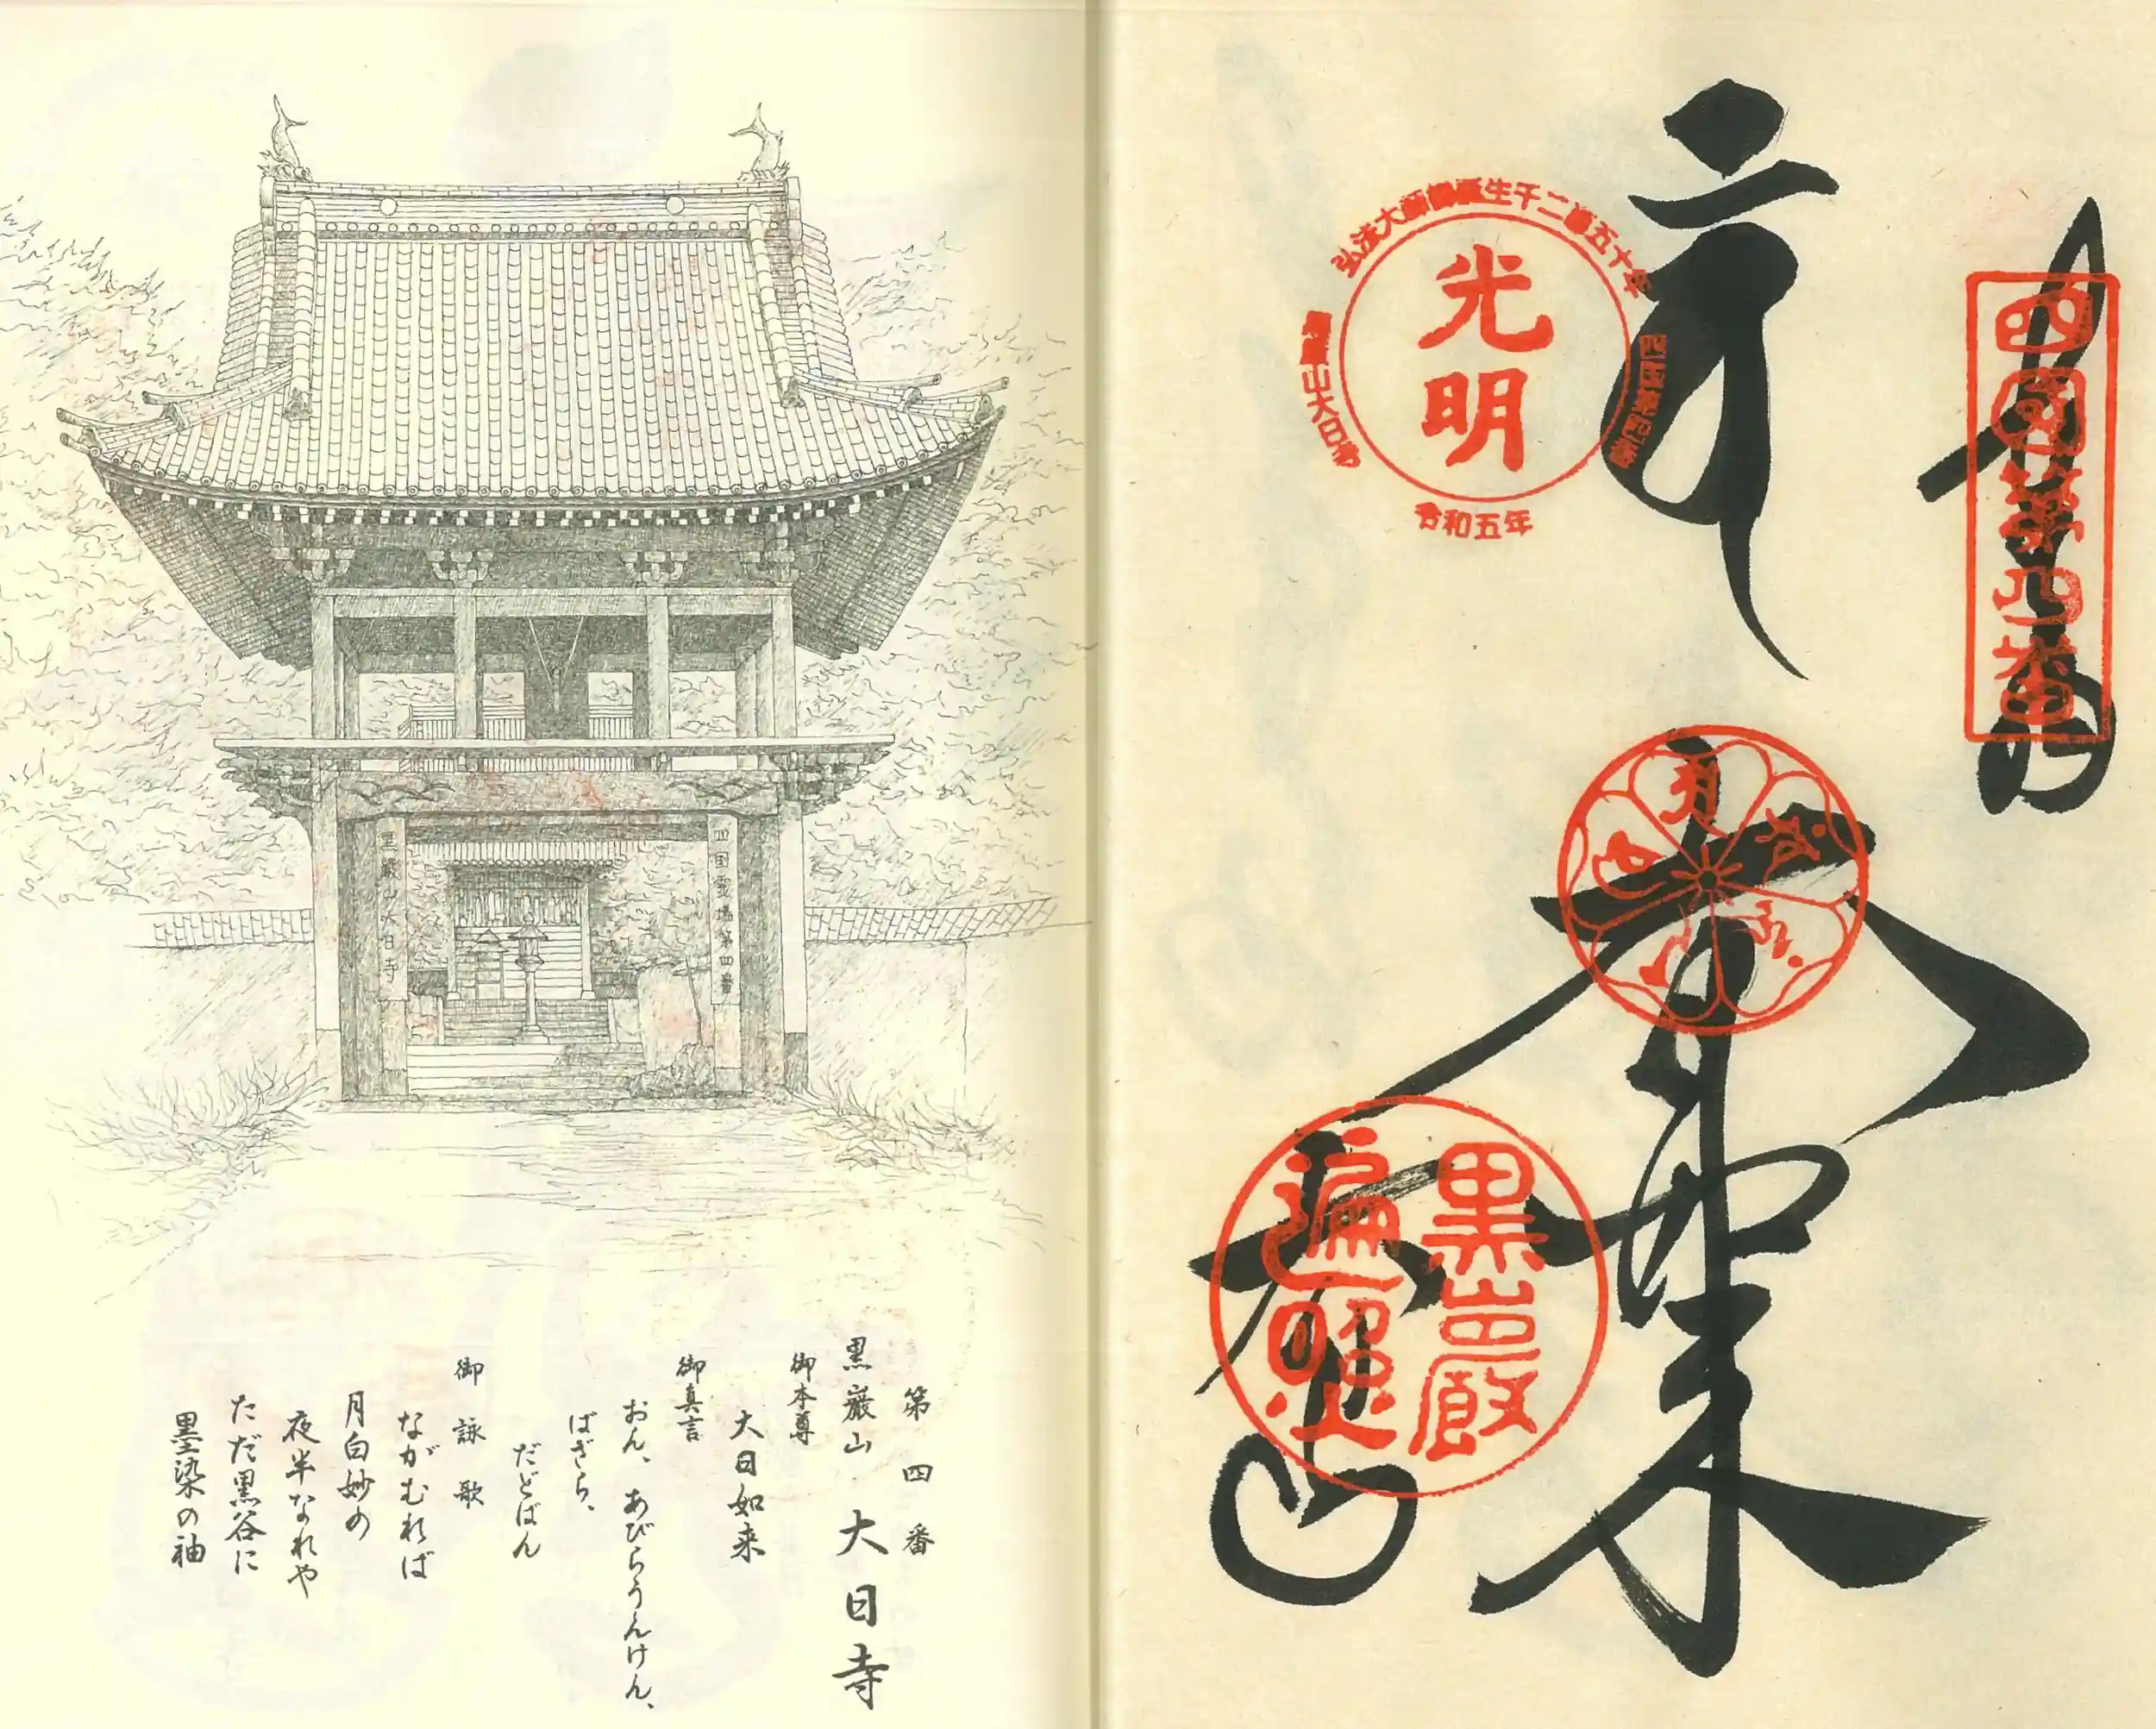 第四番
黒巌山 大日寺
御本尊
大日如来
御真言
おん、あびらうんけん、
ばざら、
だどばん
御詠歌
ながむれば
月白妙の
夜半なれや
ただ黒谷に
墨染の袖
四国霊場第四番
黒巌山大日寺
奉
四國第四番
大日如来
弘法大師御誕生千二百五十年
四国第四番
光明
黒巌山大日寺
令和五年
黒巖
遍照